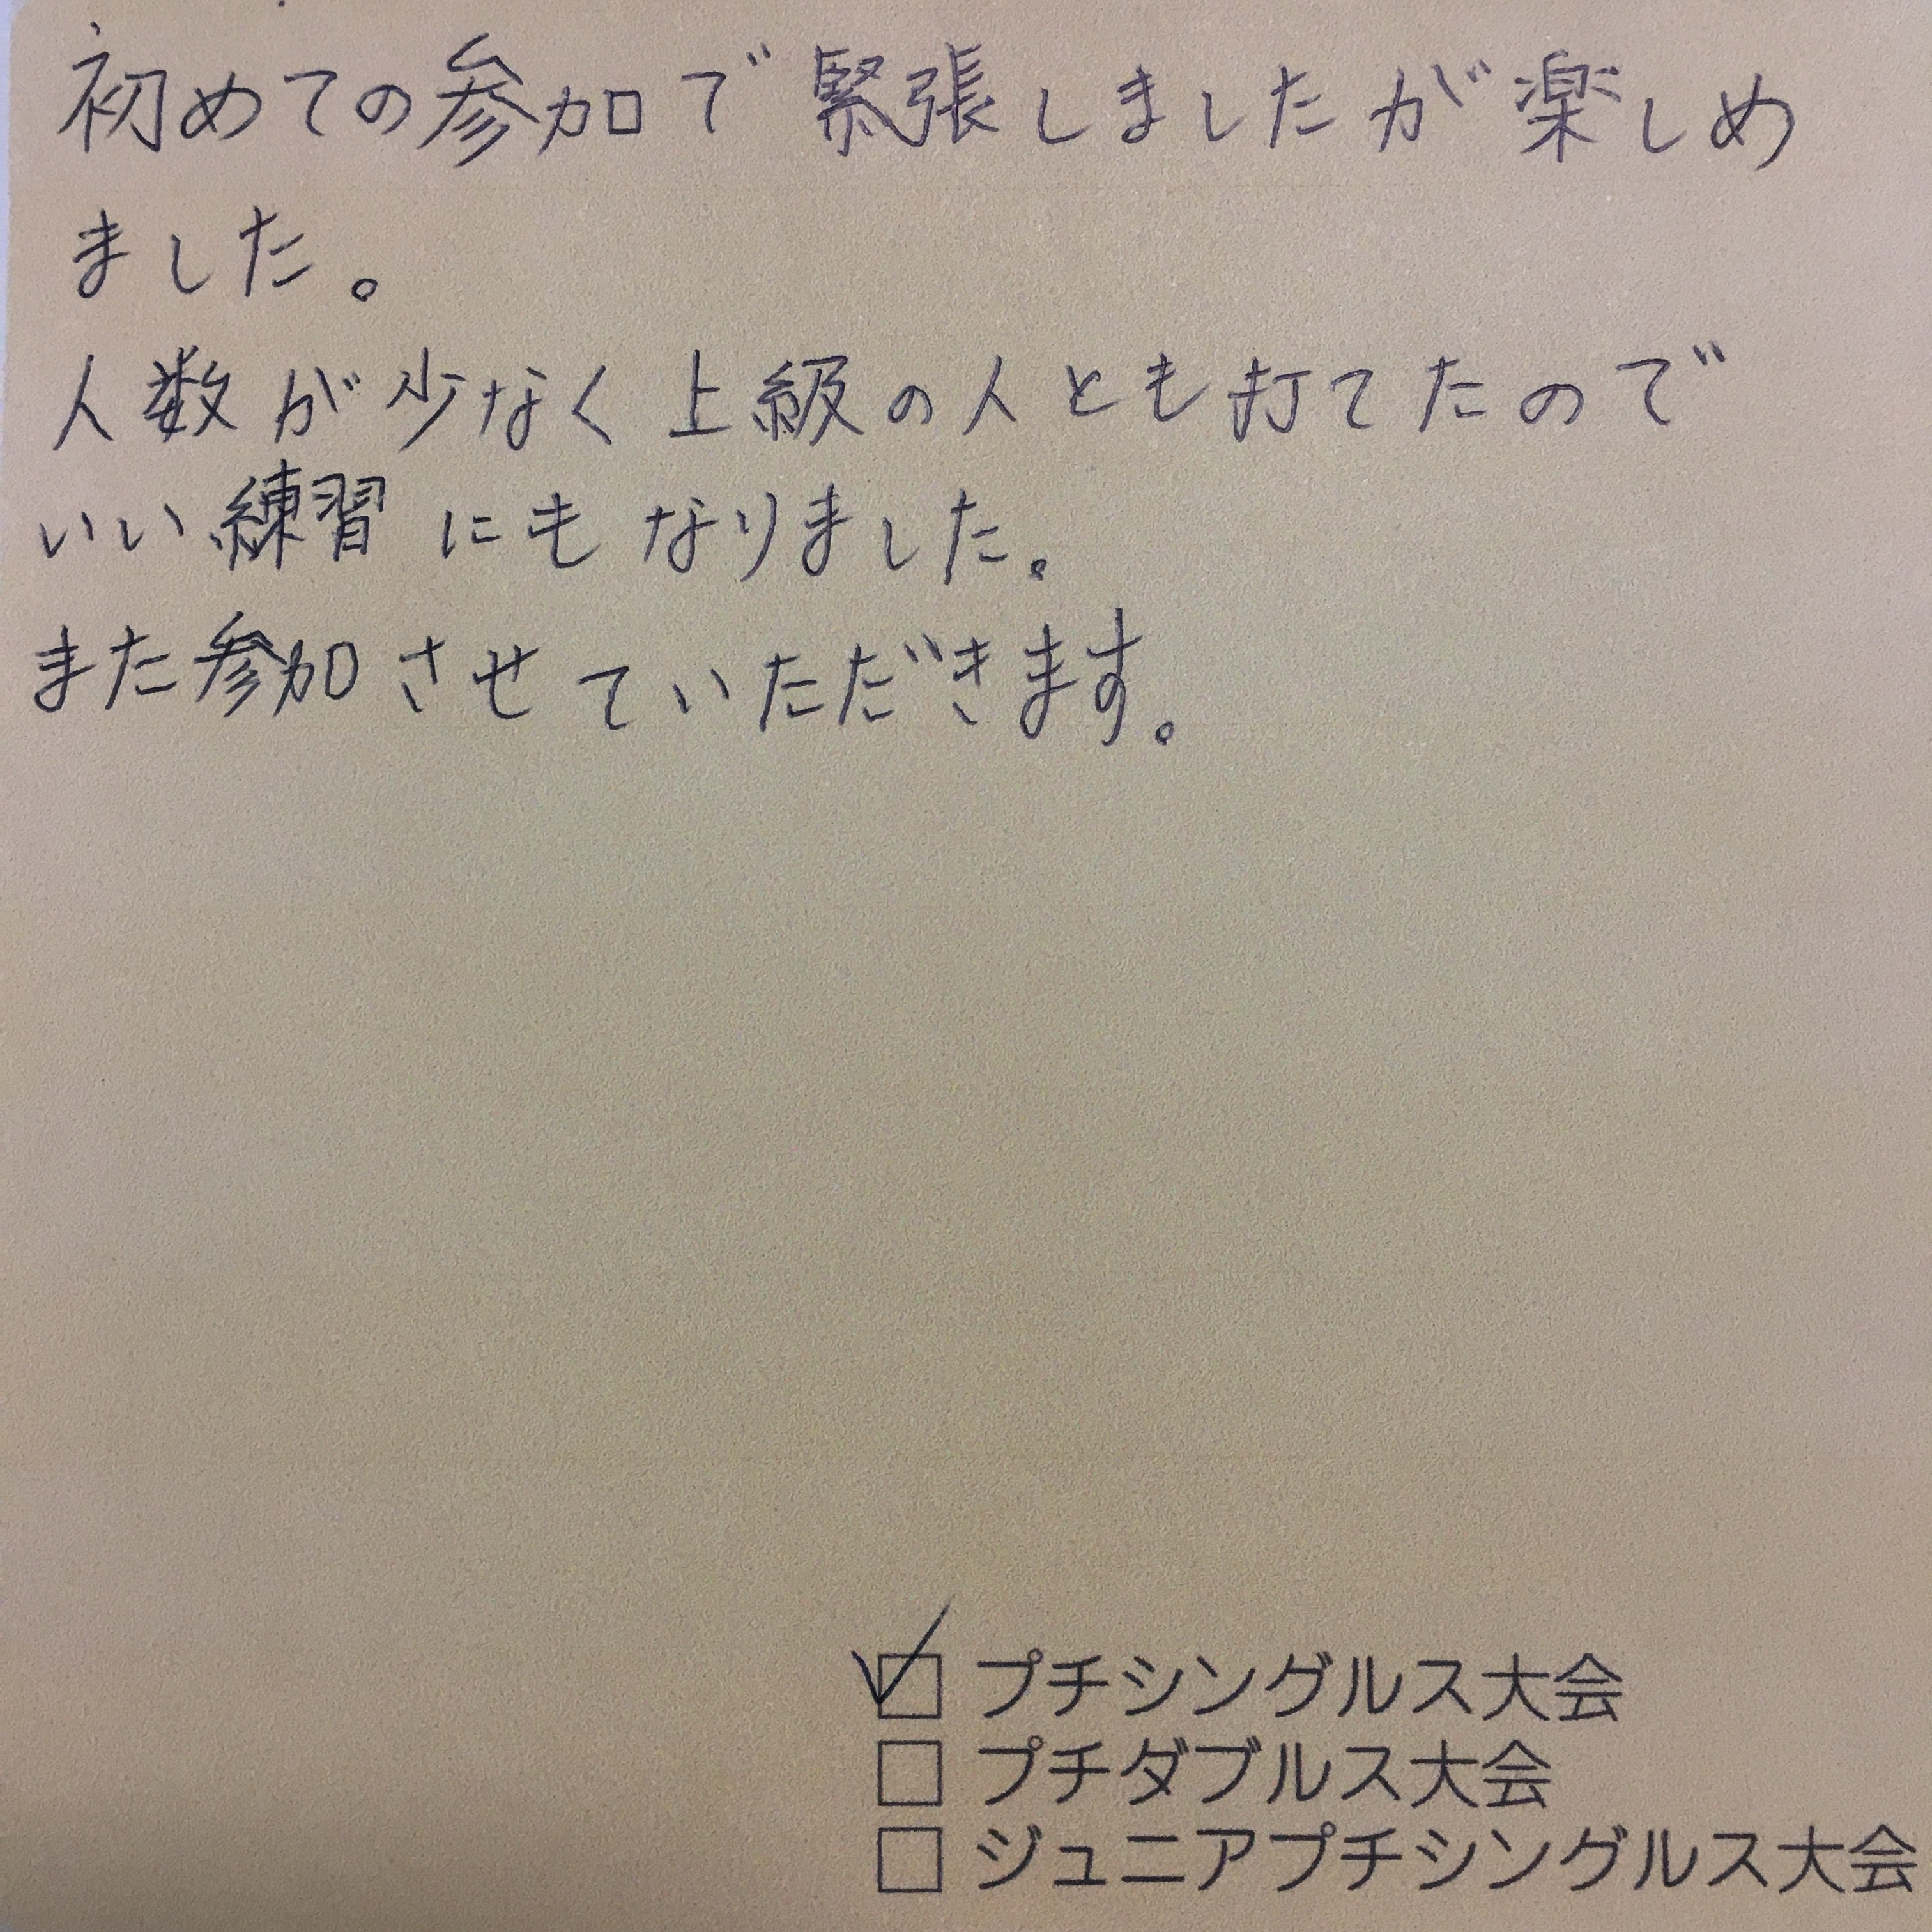 初めての参加で緊張しましたが楽しめ
ました。
人数が少なく上級の人とも打てたので
いい練習にもなりました。
また参加させていただきます。
☑ プチシングルス大会
☐ プチダブルス大会
☐ ジュニアプチシングルス大会